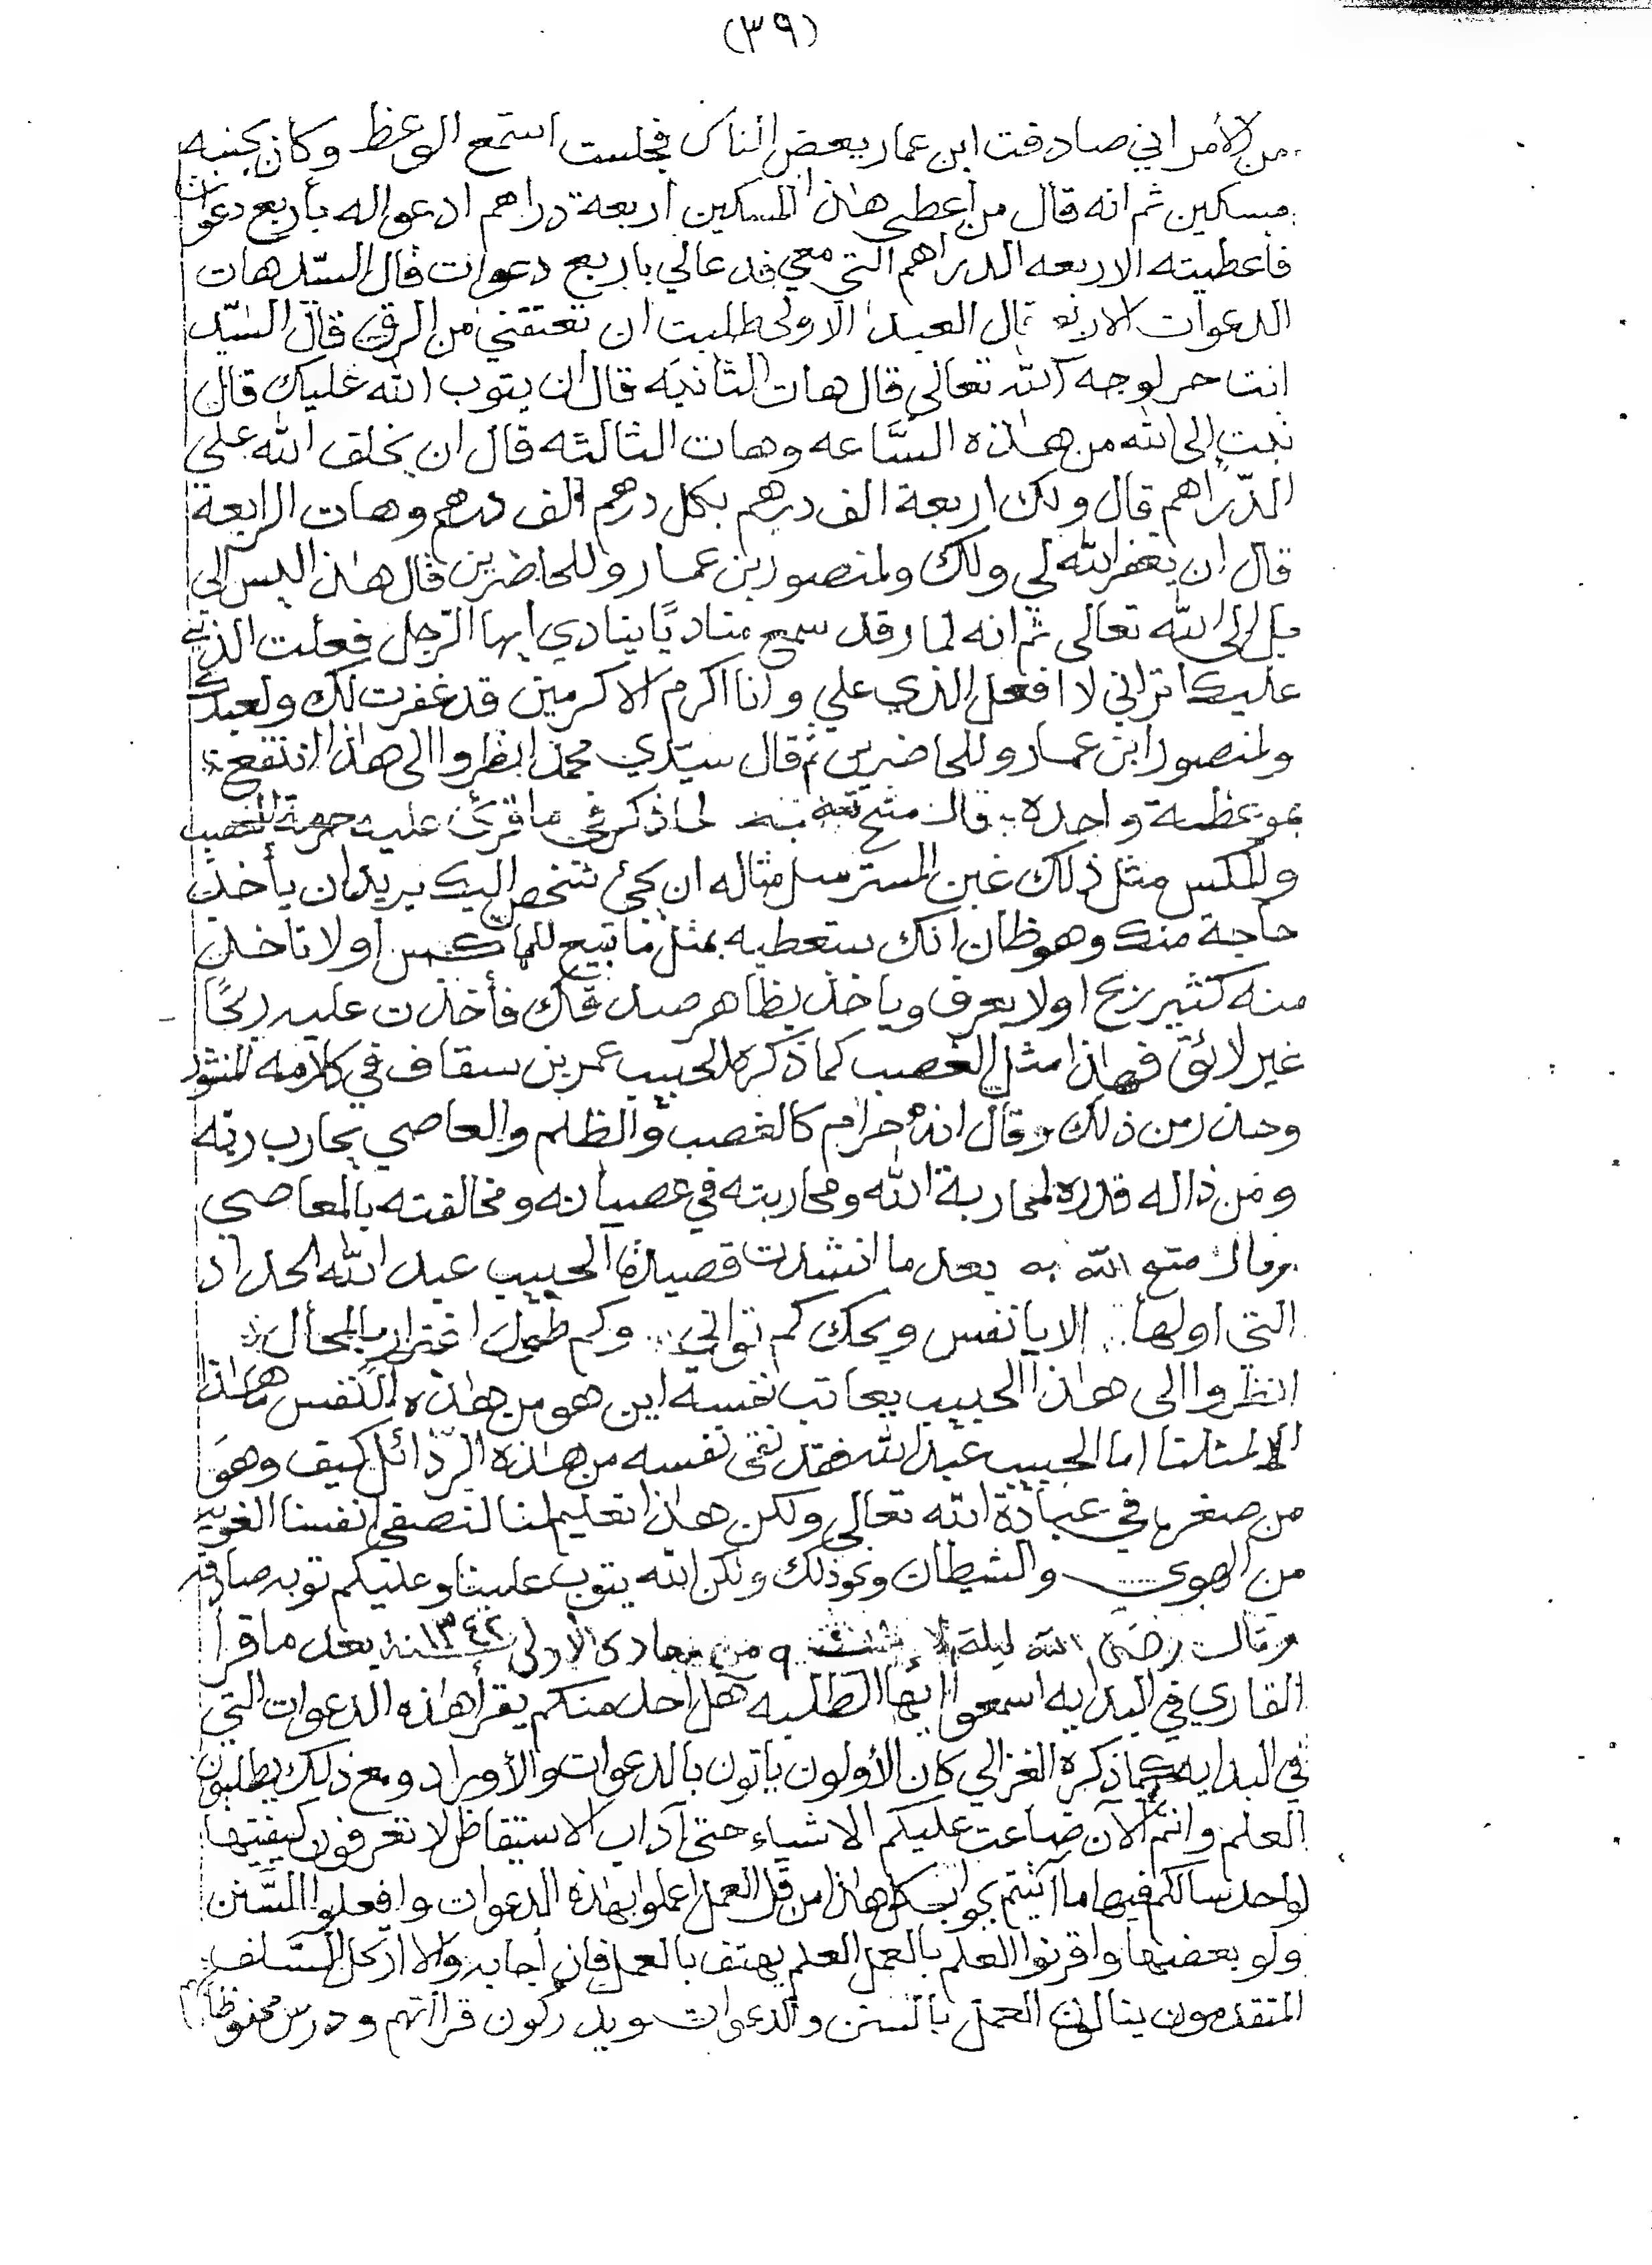 (٣٩)
من الأمر اني صادفت ابن عمار يعض الناس فجلست استمع الوعظ وكان بجنبه
مسكين ثم انه قال من اعطى هذا المسكين اربعة دراهم ادعو له بأربع دعوات
فاعطيته الاربعه الدراهم التي معي فدعالي باربع دعوات قال السيّد هات
الدعوات الاربع قال العبد الاولى طلبت ان تعتقني من الرق قال السّيّد
انت حر لوجه الله تعالى قال هات الثانيه قال ان يتوب الله عليك قال
تبت إلى الله من هذه السَّاعه وهات الثالثه قال ان يخلف الله علي
الدّراهم قال ولك اربعة الف درهم بكل درهم الف درهم وهات الرابعة
قال ان يغفر الله لي ولك ولمنصور بن عمار وللحاضرين قال هذا ليس الي
بل إلى الله تعالى ثم انه لما رقد سمع مناديًا ينادي ايها الرّجل فعلت الذي
عليك اتراني لا افعل الذي علي وانا اكرم الاكرمين قد غفرت لك ولعبدك
ولمنصور ابن عمار وللحاضرين ثم قال سيّدي محمد انظروا الى هذا انتفع
بموعظة واحده وقال متع الله به لما ذكر في ما قرئ عليه حرمة الغصب
والمكس مثل ذلك غبن المسترسل مثاله ان يجئ شخص اليك يريد ان يأخذ
حاجة منك وهو ظان انك ستعطيه بمثل ما تبيع للماكس اولا تاخذ
منه كثير ربح اولا يعرف وياخذ بظاهر صدقك فأخذت عليه ربحًا
غير لائق فهذا مثل الغصب كما ذكره الحبيب عمر بن سقاف في كلامه المنثور
وحذر من ذلك وقال انه حرام كالغصب والظلم والعاصي يحارب ربّه
ومن ذا له قدره لمحاربة الله ومحاربته في عصيانه ومخالفته بالمعاصي
وقال متع الله به بعد ما انشدت قصيدة الحبيب عبد الله الحداد
التي اولها الا يا نفس ويحك كم تواني وكم طول اغترار بالمحال
انظروا الى هذا الحبيب يعاتب نفسه اين هو من هذه النّفس ما هذا
الا لمثلنا اما الحبيب عبد الله فقد نقى نفسه من هذه الرّذائل كيف وهوَ
من صغره في عبادة الله تعالى ولكن هذا تعليم لنا لنصفي انفسنا الغويه
من الهوى والشيطان ونحو ذلك ولكن الله يتوب علينا وعليكم توبه صادقه
وقال رضي الله ليلة الاثنين ٩ من جمادى الأولى سنة ١٣٤٢ بعد ما قرأ
القاري في البدايه اسمعوا ايها الطلبه هل احد منكم يقرأ هذه الدعوات التي
في البدايه كما ذكره الغزالي كان الأولون يأتون بالدعوات والأوراد ومع ذلك يطلبون
العلم وانتم الآن ضاعت عليكم الاشياء حتى آداب الاستيقاظ لا تعرفون كيفيتها
لو احد سالكم فيها ما اتيتم بجواب كل هذا من قل العمل اعملوا بهذه الدعوات وافعلوا السّنن
ولو بعضها واقرنوا العلم بالعمل العلم يهتف بالعمل فان أجابه والا ارتحل السَّلف
المتقدمون ينالون العمل بالسنن والدعوات ويدركون قراءتهم ودرس محفوظاتهم